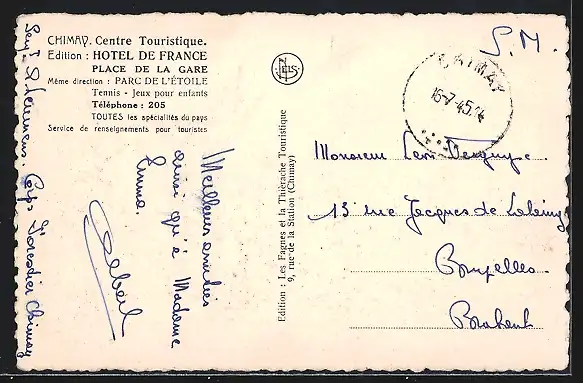 CHIMAY. Centre Touristique.
Edition : HOTEL DE FRANCE
PLACE DE LA GARE
Même direction : PARC DE L'ÉTOILE
Tennis - Jeux pour enfants
Téléphone : 205
TOUTES les spécialités du pays
Service de renseignements pour touristes
NELS
S.M.
CHIMAY
16-7-45
Monsieur Léon
13 rue Jacques de Lalaing
Bruxelles
Brabant
Edition : Les Fagnes et la Thiérache Touristique
9, rue de la Station (Chimay)
Meilleurs amitiés
ainsi qu'à Madame
Emma.
Corps Chimay